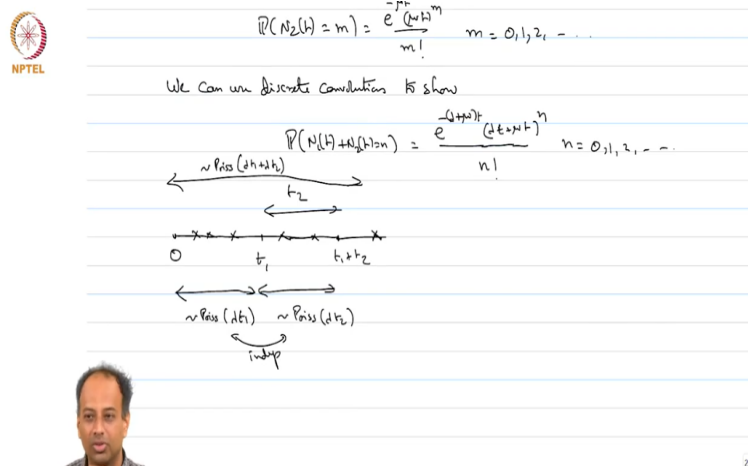 P(N₂(t)=m) = e^{-μt}(μt)^m / m!   m = 0,1,2, - - - -
NPTEL
We can use discrete convolutions to show
P(N₁(t)+N₂(t)=n) = e^{-(λ+μ)t} (λt+μt)^n / n!   n = 0,1,2, - - - -
~ Poiss(λt₁+λt₂)
t₂
0 t₁ t₁+t₂
~ Poiss(λt₁) ~ Poiss(λt₂)
indep